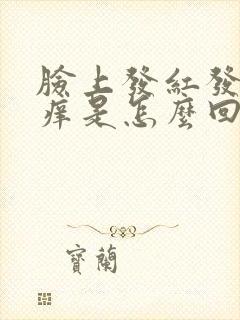 臉上發紅發
癢是怎麼回
寶蘭